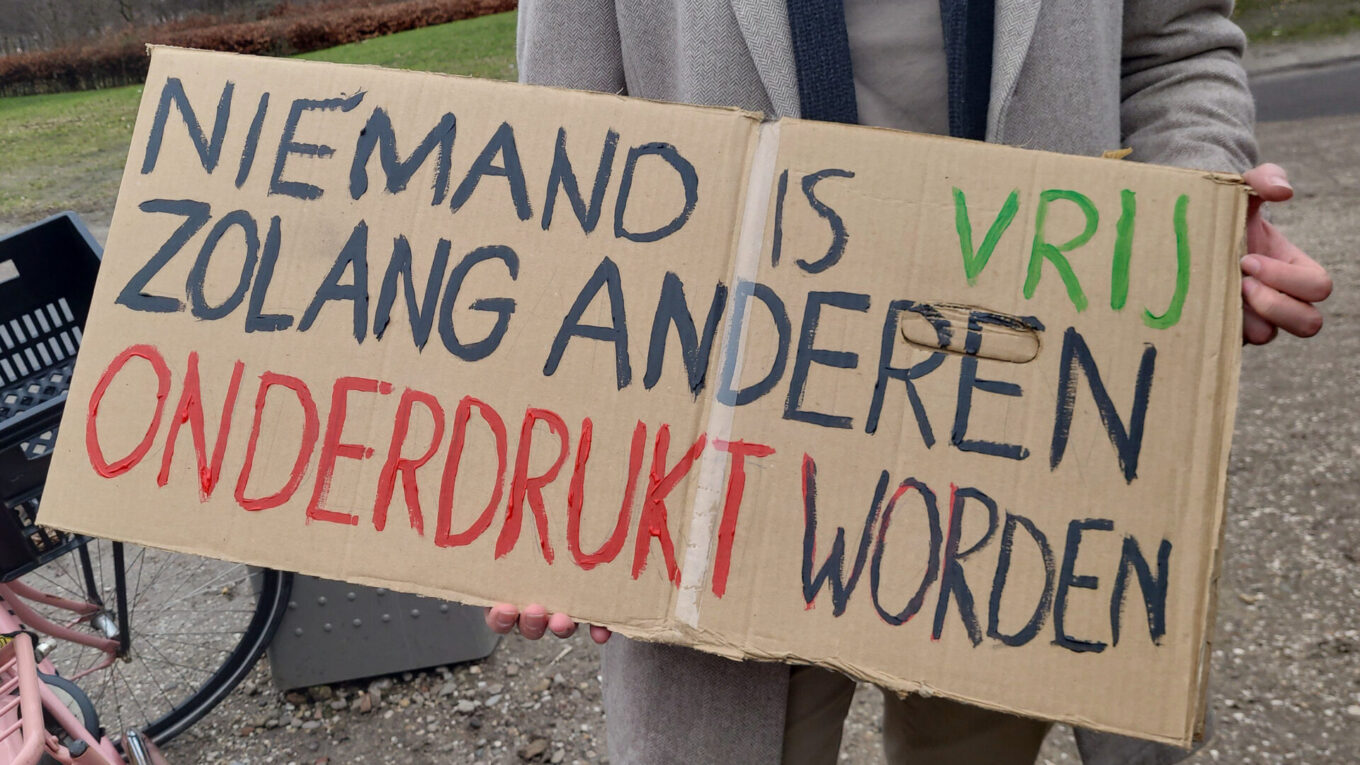 NIEMAND IS VRIJ
ZOLANG ANDEREN
ONDERDRUKT WORDEN